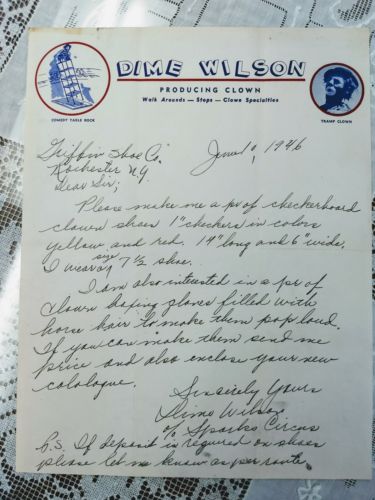 DIME WILSON
PRODUCING CLOWN
Walk Arounds — Stops — Clown Specialties
COMEDY TABLE ROCK
TRAMP CLOWN
June 10, 1946
Griffin Shoe Co.
Rochester N.Y.
Dear Sir;
Please make me a pr of checkerboard
clown shoes 1" checkers in colors
yellow and red. 14" long and 6 wide.
I wear a size 7½ shoe.
I am also interested in a pr of
clown boxing gloves filled with
horse hair to make them pop loud.
If you can make them send me
price and also enclose your new
catologue.
Sincerely Yours
Dime Wilson
of Sparks Circus
P.S. If deposit is required on shoes
please let me know as per route.